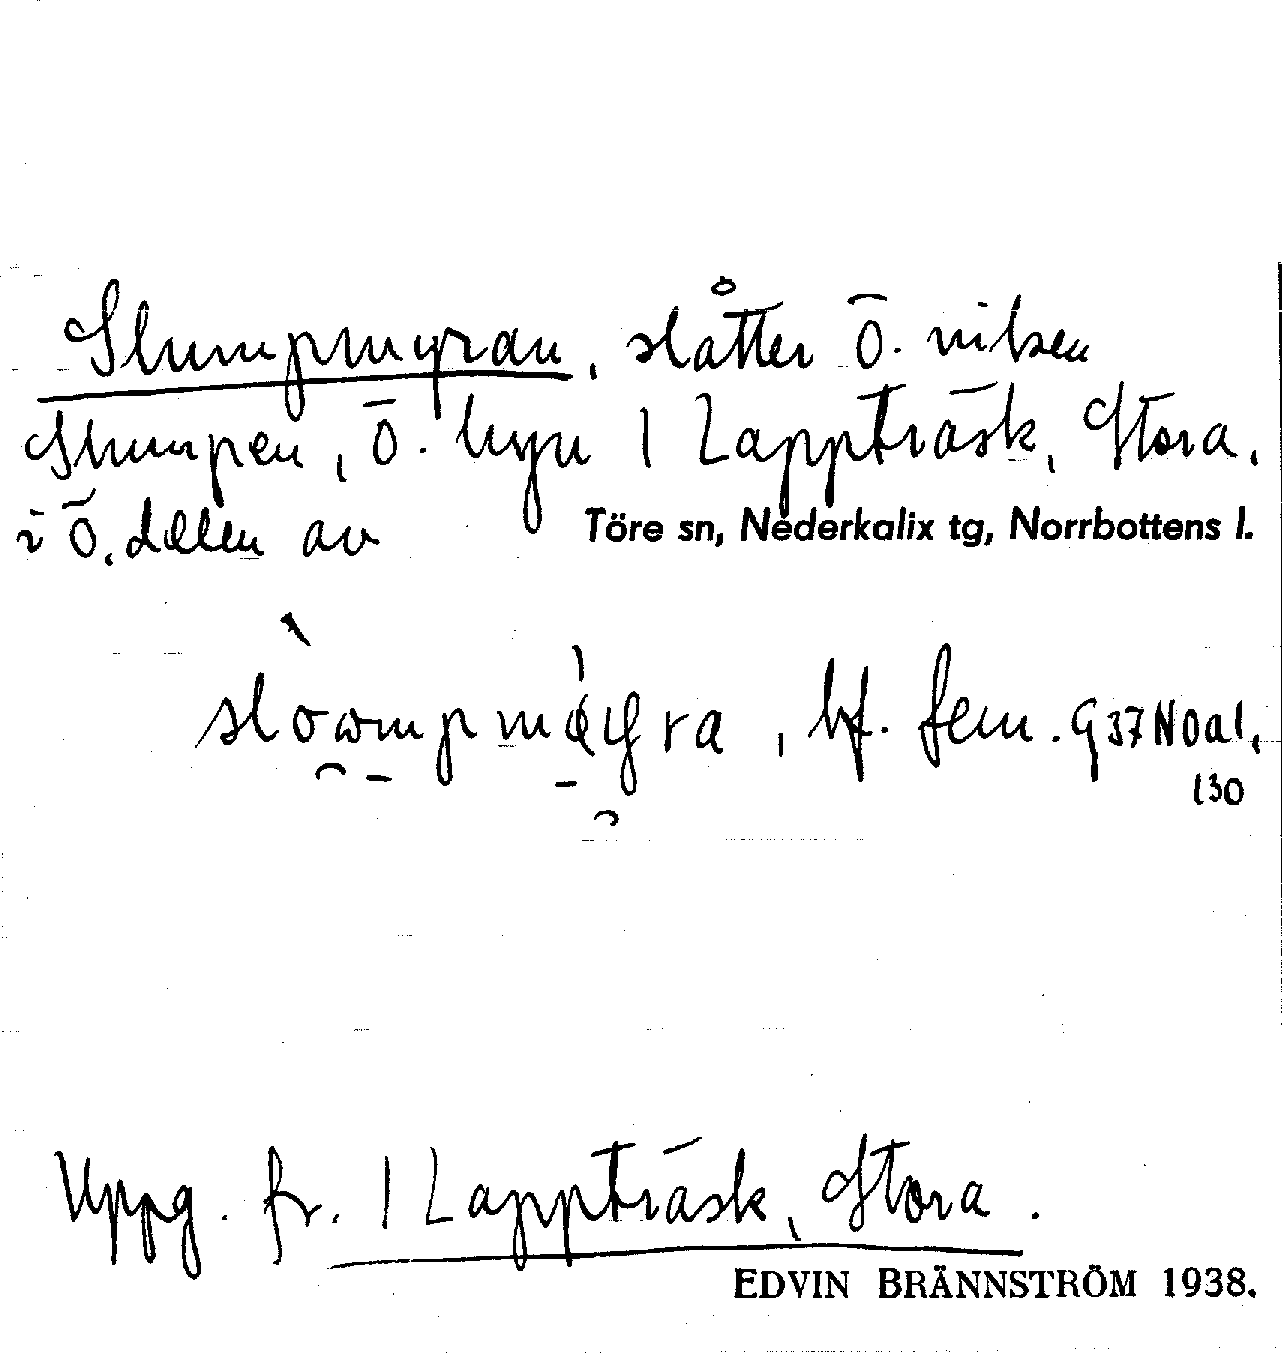 Slumpmyran, slåtter Ö. viken
Slumpen, Ö. byn 1 Lappträsk, Stora.
i Ö. delen av Töre sn, Nederkalix tg, Norrbottens l.
bf. fem. G37N0a1,
130
Uppg. fr. 1 Lappträsk, Stora.
EDVIN BRÄNNSTRÖM 1938.